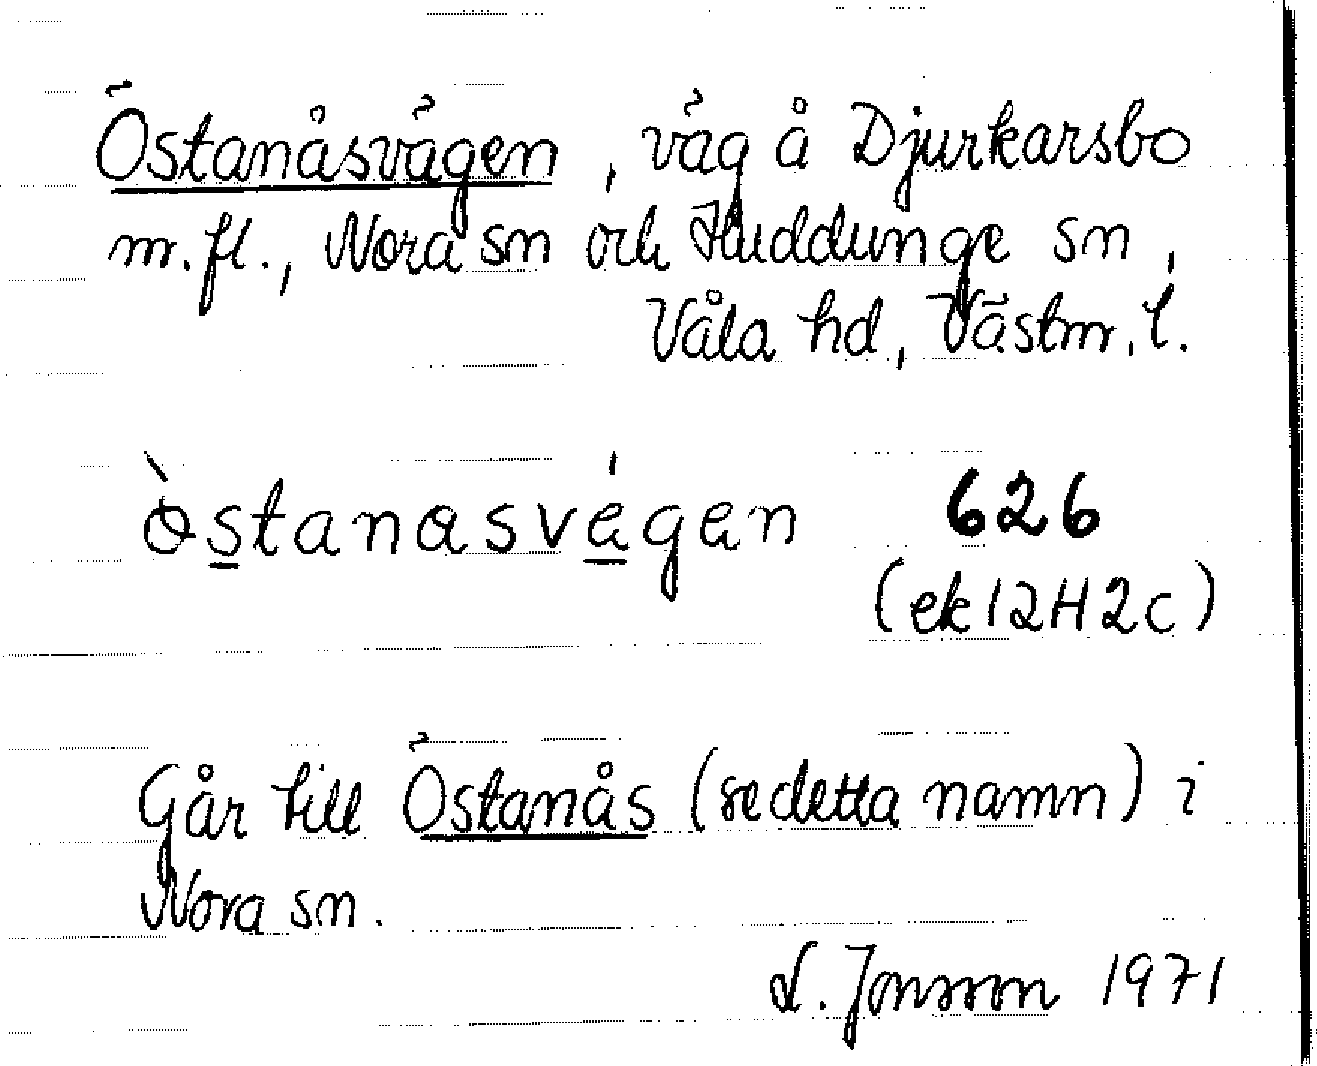 Östanåsvägen, väg å Djurkarsbo
m.fl., Nora sn och Huddunge sn,
Våla hd, Västm. l.
ò̀stanasvágen 626
(ek 12H2c)
Går till Östanås (se detta namn) i
Nora sn.
L. Jonsson 1971